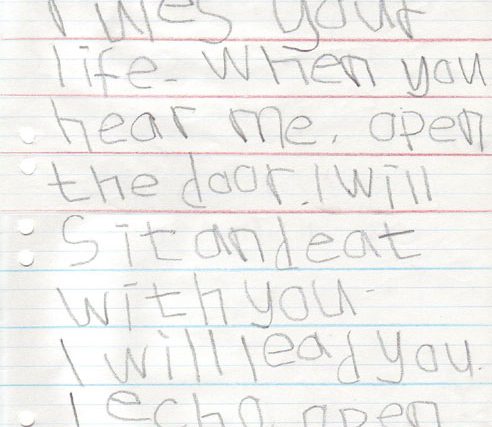 your
life. When you
hear me, open
the door. I will
Sit and eat
with you.
I will lead you.
I echo open